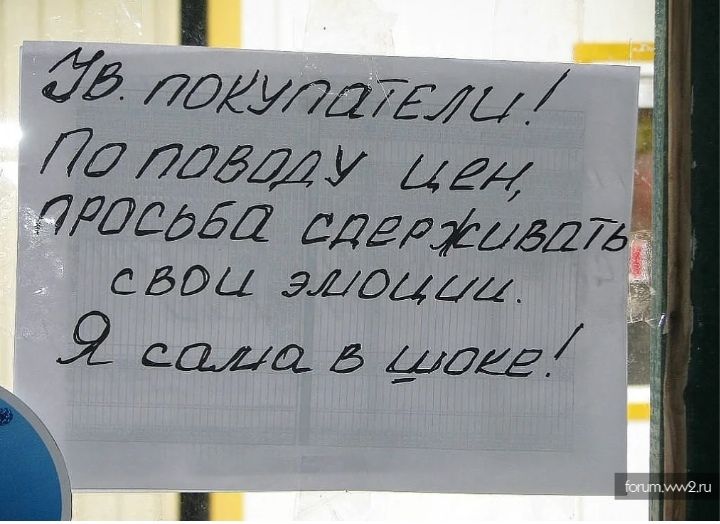 Ув. покупатели!
По поводу цен,
просьба сдерживать
свои эмоции.
Я сама в шоке!
forum.ww2.ru